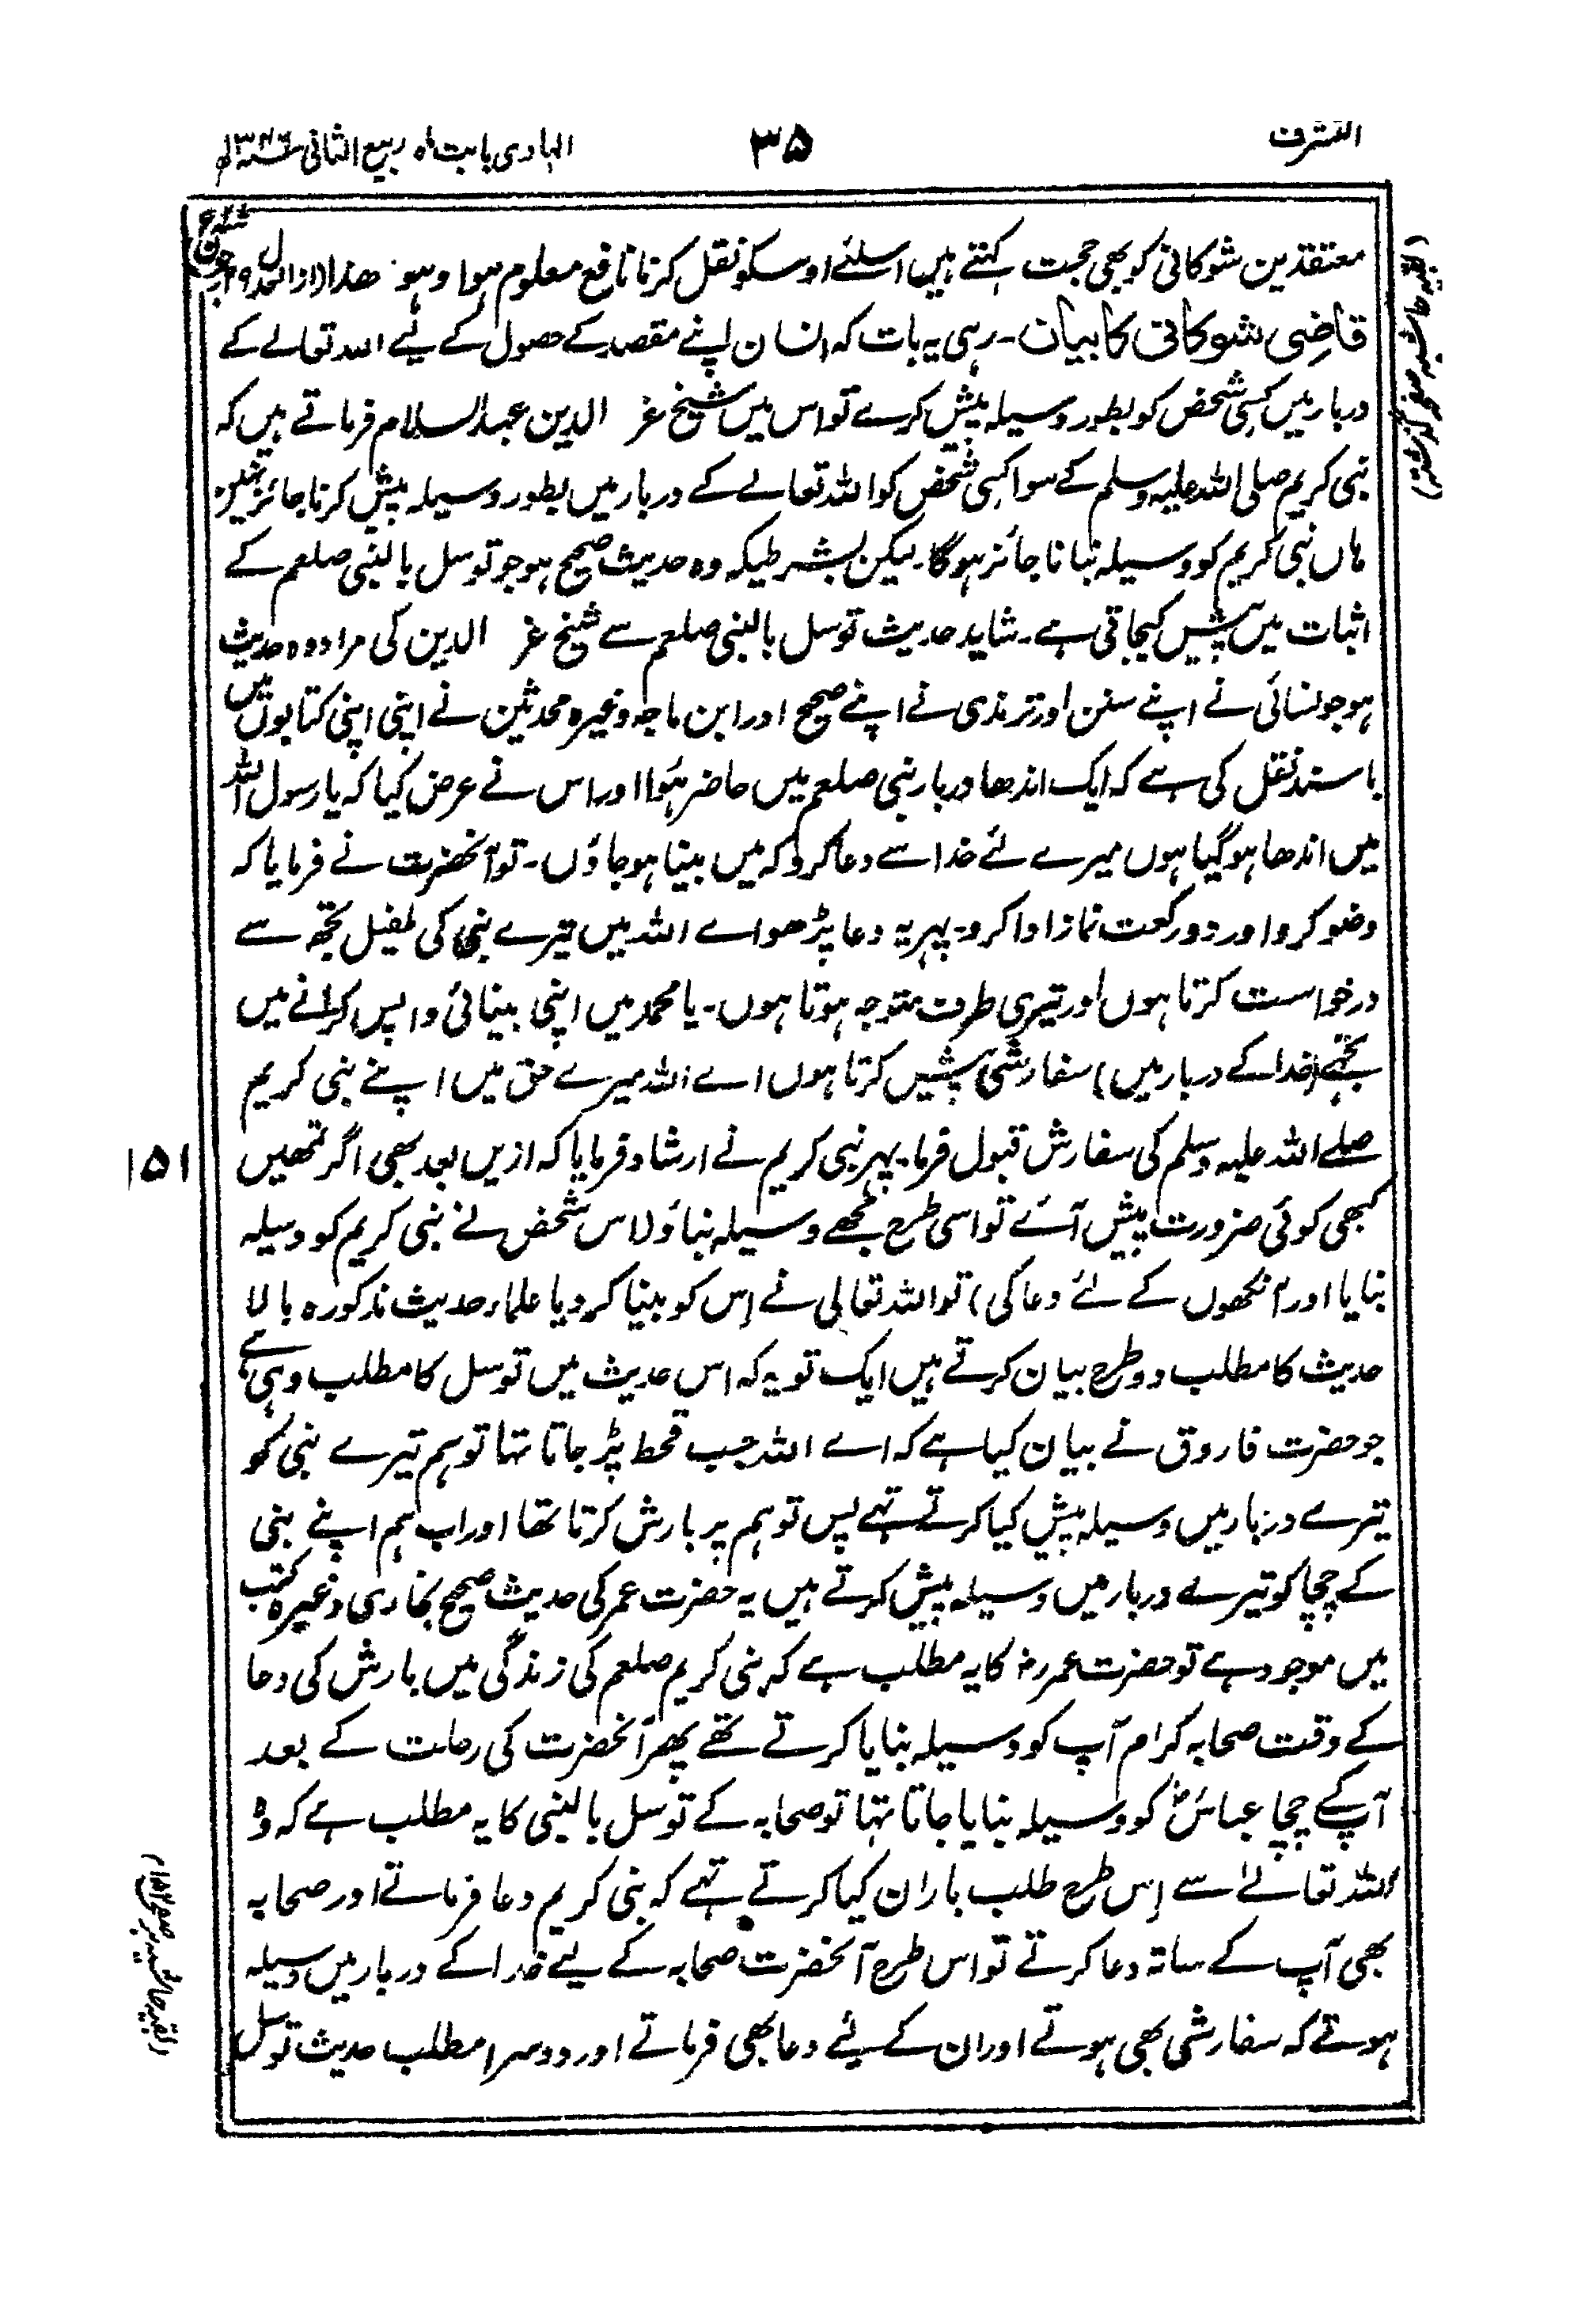 التشرف
۳۵
الہادی بابت ماہ ربیع الثانی ۱۳۴۶ھ
معتقدین شوکانی کو بھی حجت کہتے ہیں اسلئے اوسکو نقل کرنا نافع معلوم ہوا وہو ہذا (از
قاضی شوکانی کا بیان۔ رہی یہ بات کہ انسان اپنے مقصد کے حصول کے لیے اللہ تعالے کے
دربار میں کسی شخص کو بطور وسیلہ پیش کرے تو اس میں شیخ عز الدین عبد السلام فرماتے ہیں کہ
نبی کریم صلی اللہ علیہ وسلم کے سوا کسی شخص کو اللہ تعالے کے دربار میں بطور وسیلہ پیش کرنا جائز نہیں
ہاں نبی کریم کو وسیلہ بنانا جائز ہوگا۔ لیکن بشرطیکہ وہ حدیث صحیح ہو جو توسل بالنبی صلعم کے
اثبات میں پیش کیجاتی ہے۔ شاید حدیث توسل بالنبی صلعم سے شیخ عز الدین کی مراد وہ حدیث
ہو جو نسائی نے اپنے سنن اور ترمذی نے اپنے صحیح اور ابن ماجہ وغیرہ محدثین نے اپنی اپنی کتابوں میں
با سند نقل کی ہے کہ ایک اندھا دربار نبی صلعم میں حاضر ہؤا اور اس نے عرض کیا کہ یا رسول اللہ
میں اندھا ہو گیا ہوں میرے لئے خدا سے دعا کرو کہ میں بینا ہو جاؤں۔ تو آنحضرت نے فرمایا کہ
وضو کرو اور دو رکعت نماز ادا کرو۔ پہر یہ دعا پڑھو اے اللہ میں تیرے نبی کی طفیل تجھ سے
درخواست کرتا ہوں اور تیری طرف متوجہ ہوتا ہوں۔ یا محمد میں اپنی بینائی واپس کرانے میں
تجھے (خدا کے دربار میں) سفارشی پیش کرتا ہوں اے اللہ میرے حق میں اپنے نبی کریم
صلے اللہ علیہ وسلم کی سفارش قبول فرما۔ پہر نبی کریم نے ارشاد فرمایا کہ ازیں بعد بھی اگر تمھیں
۱۵۱
کبھی کوئی ضرورت پیش آئے تو اسی طرح مجھے وسیلہ بناؤ (اس شخص نے نبی کریم کو وسیلہ
بنایا اور آنکھوں کے لئے دعا کی) تو اللہ تعالی نے اس کو بینا کر دیا علماء حدیث مذکورہ بالا
حدیث کا مطلب دو طرح بیان کرتے ہیں ایک تو یہ کہ اس حدیث میں توسل کا مطلب وہی ہے
جو حضرت فاروق نے بیان کیا ہے کہ اے اللہ جب قحط پڑ جاتا تہا تو ہم تیرے نبی کو
تیرے دربار میں وسیلہ پیش کیا کرتے تہے پس تو ہم پر بارش کرتا تھا اور اب ہم اپنے نبی
کے چچا کو تیرے دربار میں وسیلہ پیش کرتے ہیں یہ حضرت عمر کی حدیث صحیح بخاری وغیرہ کتب
میں موجود ہے تو حضرت عمر رضہ کا یہ مطلب ہے کہ نبی کریم صلعم کی زندگی میں بارش کی دعا
کے وقت صحابہ کرام آپ کو وسیلہ بنایا کرتے تھے پھر آنحضرت کی رحلت کے بعد
آپ کے چچا عباسؓ کو وسیلہ بنایا جاتا تہا تو صحابہ کے توسل بالنبی کا یہ مطلب ہے کہ وہ
اللہ تعالےٰ سے اِس طرح طلب باران کیا کرتے تہے کہ نبی کریم دعا فرماتے اور صحابہ
بھی آپ کے ساتہ دعا کرتے تو اس طرح آنحضرت صحابہ کے لیے خدا کے دربار میں وسیلہ
ہوتے کہ سفارشی بھی ہوتے اور ان کے لیے دعا بھی فرماتے اور دوسرا مطلب حدیث توسل